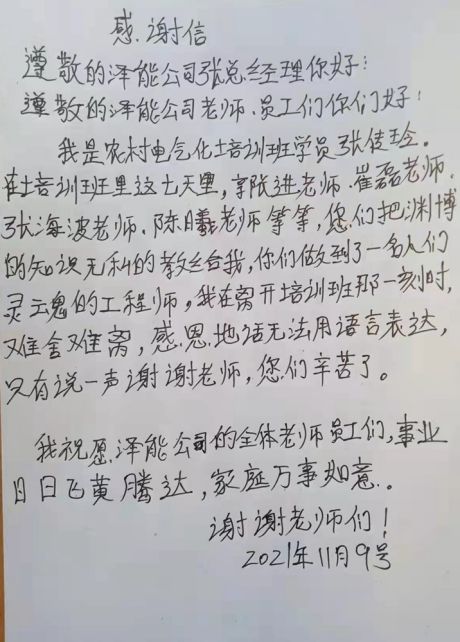 感谢信
尊敬的泽能公司张总经理你好：
尊敬的泽能公司老师、员工们你们好：
我是农村电气化培训班学员张佳玲。
在培训班里这七天里，李跃进老师、崔磊老师、
张海波老师、陈曦老师等等，您们把渊博
的知识无私的教给我，你们做到了一名人们
灵魂的工程师，我在离开培训班那一刻时，
难舍难离，感恩地话无法用语言表达，
只有说一声谢谢老师，您们辛苦了。
我祝愿泽能公司的全体老师员工们，事业
日日飞黄腾达，家庭万事如意。
谢谢老师们！
2021年11月9号